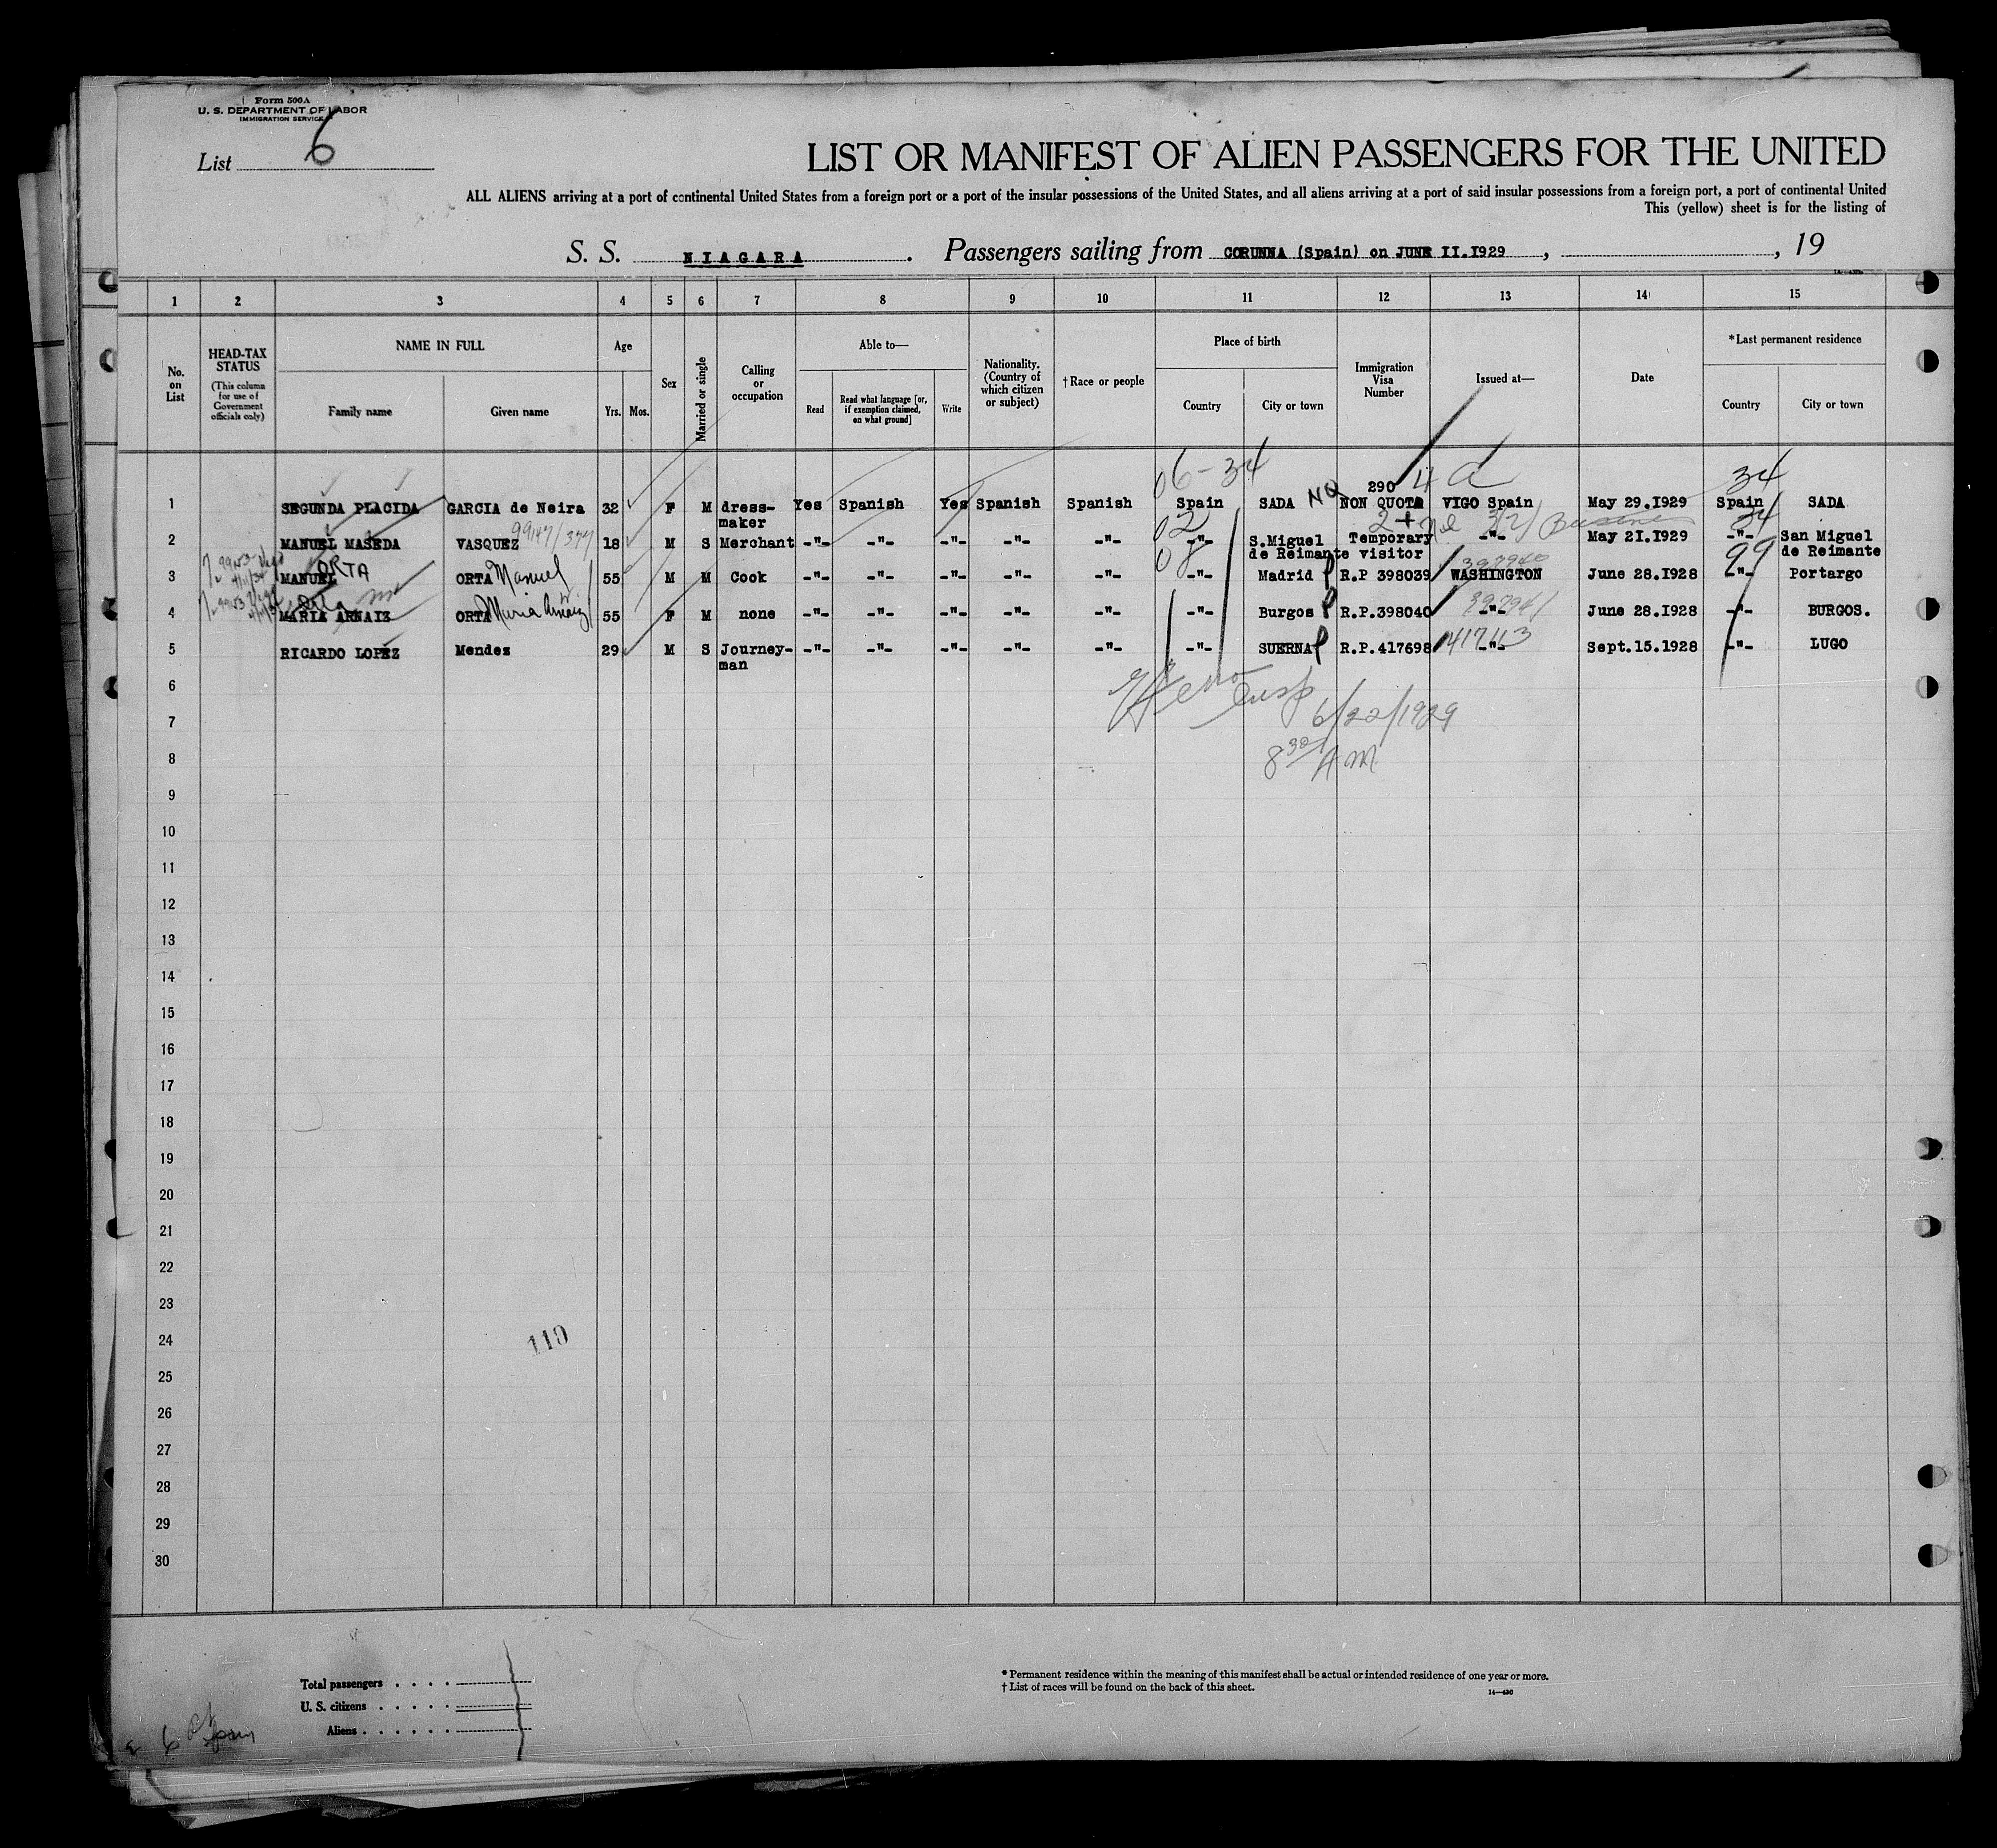 Form 500A
U. S. DEPARTMENT OF LABOR
IMMIGRATION SERVICE
List 6
LIST OR MANIFEST OF ALIEN PASSENGERS FOR THE UNITED
ALL ALIENS arriving at a port of continental United States from a foreign port or a port of the insular possessions of the United States, and all aliens arriving at a port of said insular possessions from a foreign port, a port of continental United
This (yellow) sheet is for the listing of
S. S. NIAGARA. Passengers sailing from CORUNNA (Spain) on JUNE II.I929, , 19
1 2 3 4 5 6 7 8 9 10 11 12 13 14 15
No. on List
HEAD-TAX STATUS (This column for use of Government officials only)
NAME IN FULL
Family name Given name
Age
Yrs. Mos.
Sex
Married or single
Calling or occupation
Able to—
Read Read what language [or, if exemption claimed, on what ground] Write
Nationality. (Country of which citizen or subject)
† Race or people
Place of birth
Country City or town
Immigration Visa Number
Issued at—
Date
*Last permanent residence
Country City or town
06-34 290 4 a 34
1 SEGUNDA PLACIDA GARCIA de Neira 32 F M dress-maker Yes Spanish Yes Spanish Spanish Spain SADA NQ NON QUOTA VIGO Spain May 29.I929 Spain SADA
99147/377 02 34
2 MANUEL MASEDA VASQUEZ 18 M S Merchant -"- -"- -"- -"- -"- -"- S.Miguel de Reimante Temporary visitor -"- May 2I.I929 -"- San Miguel de Reimante
ORTA Manuel 08 99
3 MANUEL ORTA 55 M M Cook -"- -"- -"- -"- -"- -"- Madrid R.P 398039 WASHINGTON June 28.I928 -"- Portargo
Maria Arnaiz
4 MARIA ARNAIZ ORTA 55 F M none -"- -"- -"- -"- -"- -"- Burgos R.P.398040 -"- June 28.I928 -"- BURGOS.
417113
5 RICARDO LOPEZ Mendez 29 M S Journey-man -"- -"- -"- -"- -"- -"- SUERNA R.P.417698 -"- Sept.15.I928 -"- LUGO
6
Insp
6/22/1929
7
8 30 AM
8
9
10
11
12
13
14
15
16
17
18
19
20
21
22
23
24
110
25
26
27
28
29
30
Total passengers . . . .
U. S. citizens . . . . .
Aliens . . . . . .
* Permanent residence within the meaning of this manifest shall be actual or intended residence of one year or more.
† List of races will be found on the back of this sheet.
14—430
6